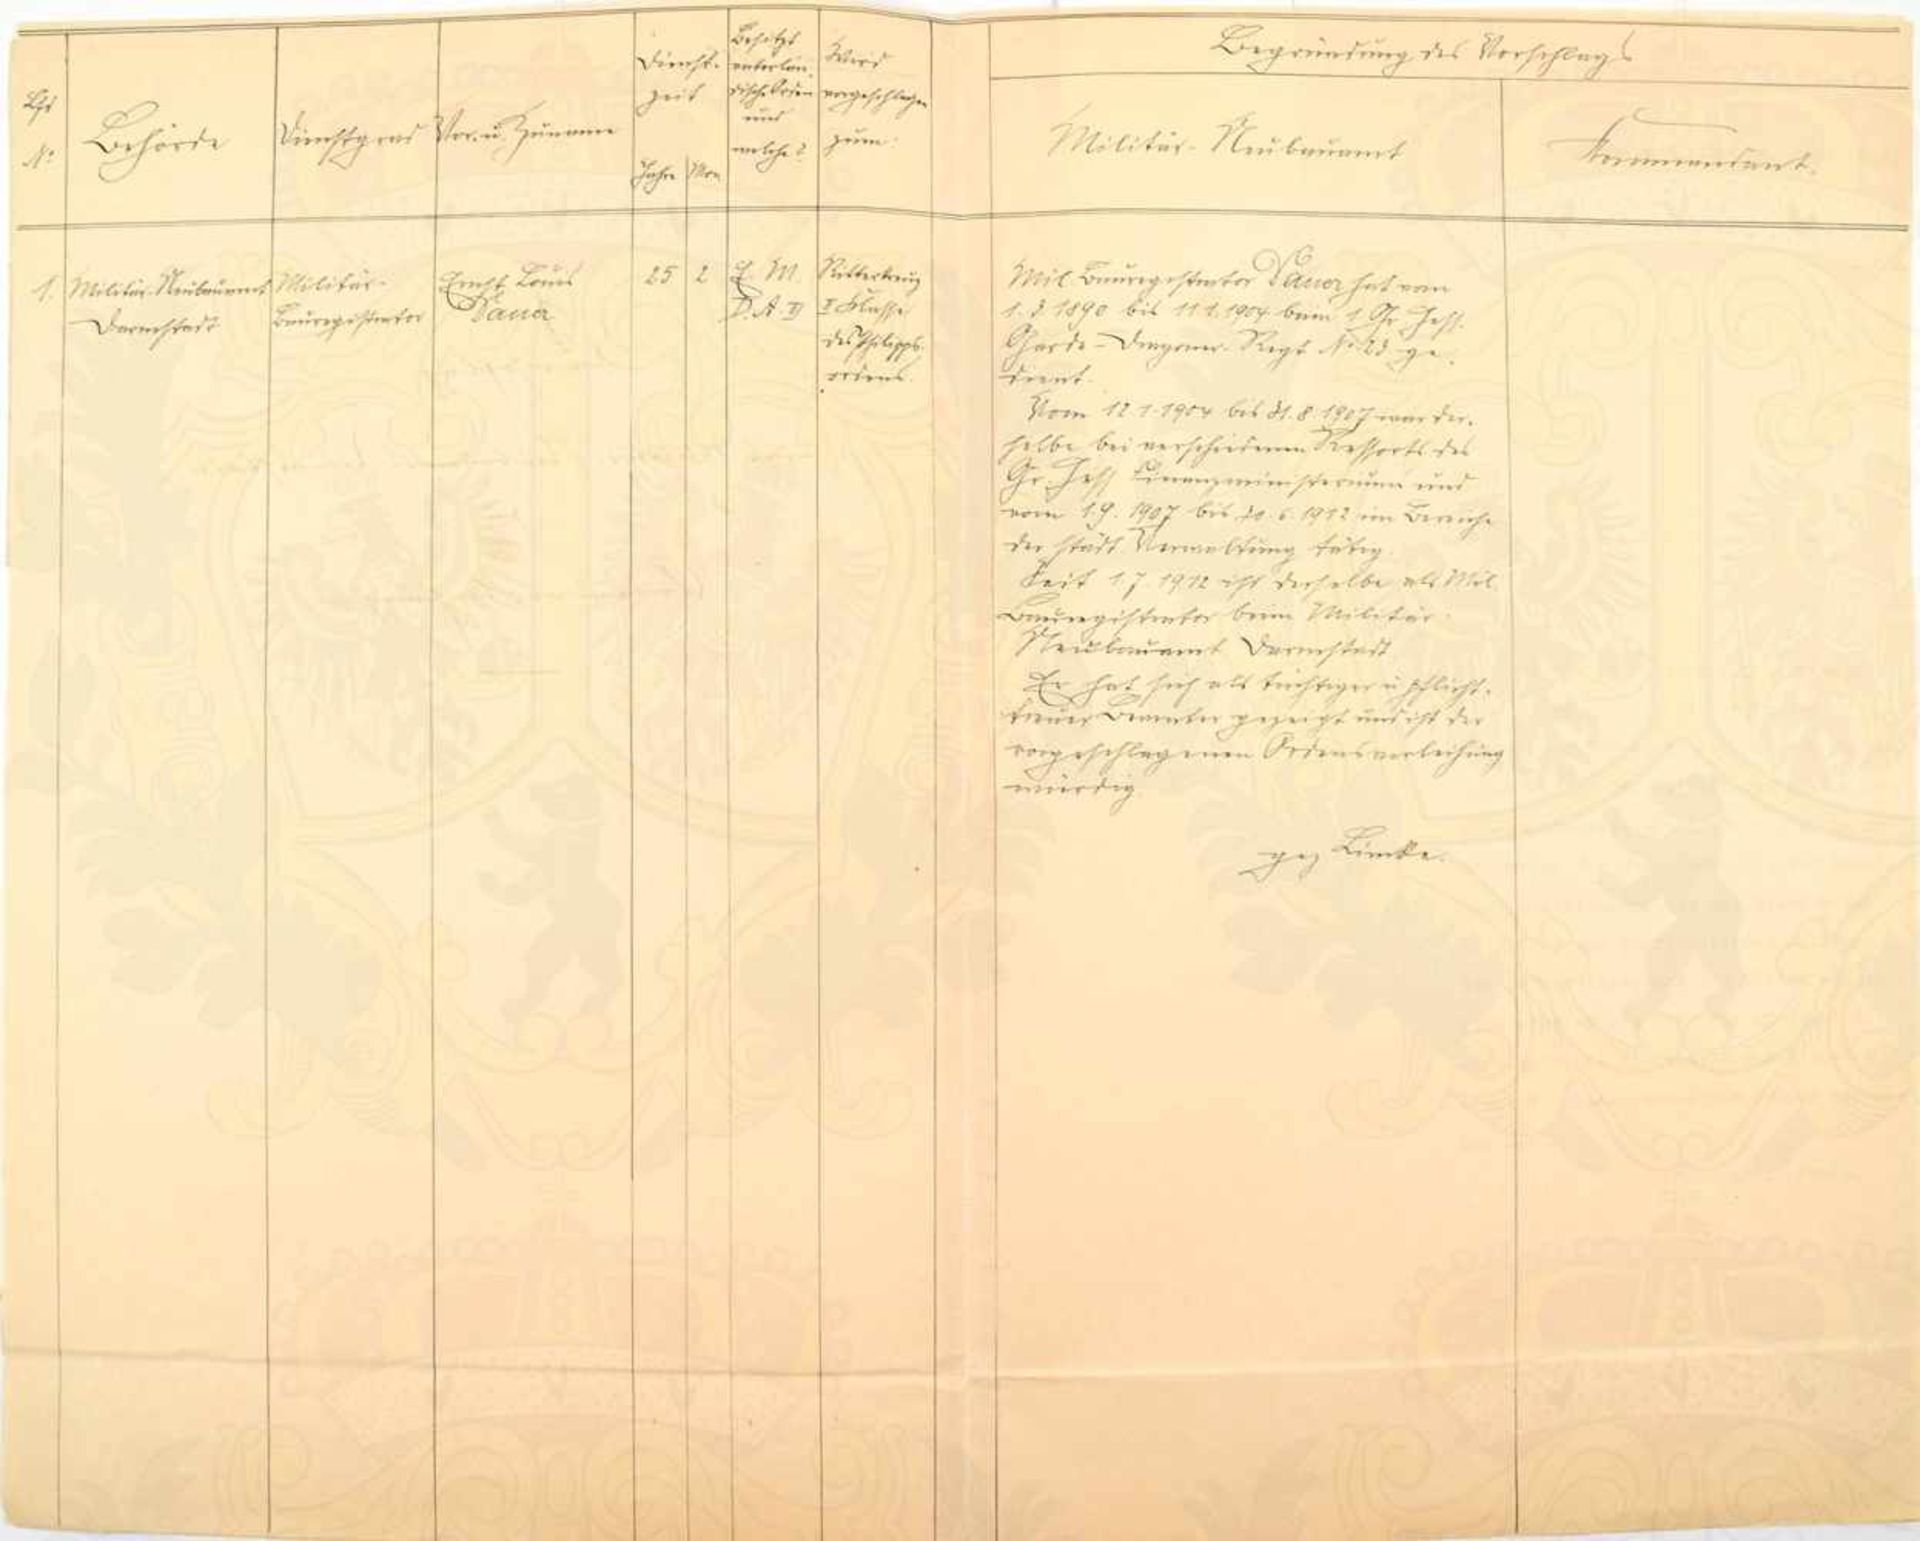 Begründung des Vorschlags
Lfd
No
Behörde
Dienstgrad
Vor- u. Zuname
Dienst-
zeit
Jahre Mon
Besitzt
vaterlän-
dische Orden
und
welche?
Wird
vorgeschlagen
zum:
Militär-Neubauamt
Kommandant.
1.
Militär-Neubauamt
Darmstadt
Militär-
Bauregistrator
Ernst Louis
25 2
D. A.
Ritterkreuz
II Klasse
des Philipps-
ordens.
Mil Bauregistrator hat vom
1890 bis 11.1.1904 beim 1. Gr. Hess.
Garde-Dragoner-Regt No 23 ge-
dient.
Vom 12.1.1904 bis 31.8.1907 war der-
selbe bei verschiedenen Ressorts des
Gr. Hess Finanzministerium und
vom 1.9.1907 bis 30.6.1912 im Bereiche
der städt. Verwaltung tätig.
Seit 1.7.1912 ist derselbe als Mil.
Bauregistrator beim Militär-
Neubauamt Darmstadt
Er hat sich als tüchtiger u. pflicht-
treuer Beamter gezeigt und ist der
vorgeschlagenen Ordensverleihung
würdig.
gez